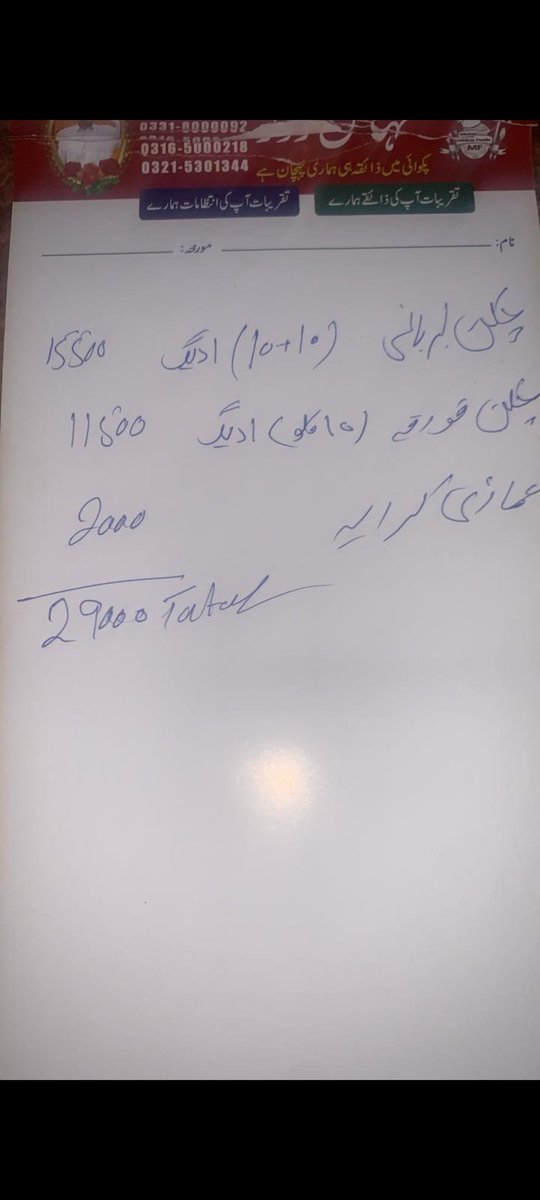 0331-8000092
0316-5000218
0321-5301344
پکوائی میں ذائقہ ہی ہماری پہچان ہے
MF
تقریبات آپ کی ذائقے ہمارے
تقریبات آپ کی انتظامات ہمارے
نام: مورخہ:
چکن بریانی (10+10) 1دیگ 15500
چکن قورمہ (10 کلو) 1دیگ 11500
کرایہ 2000
29000 Total